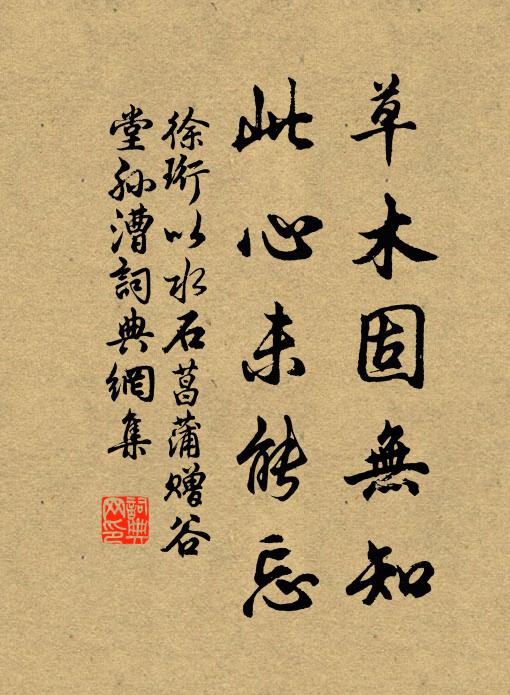 草木固無知
此心未能忘
徐珩以水石菖蒲贈谷
堂孙漕詞典網集
詞典
网印